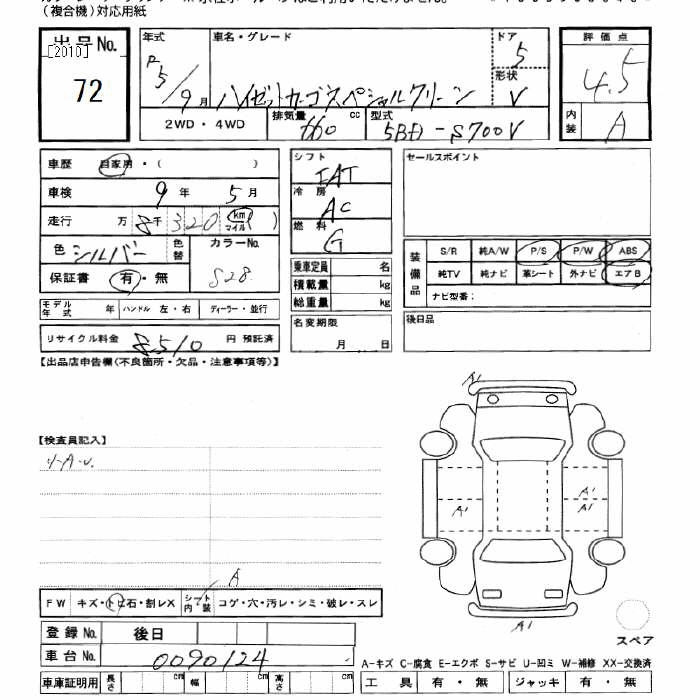 (複合機)対応用紙
出品No. 年式 車名・グレード ドア 評価点
[2010] 5
72 5/9月 ハイゼットカーゴスペシャルクリーン 形状 V 4.5
2WD・4WD 排気量 660 cc 型式 EBD-S700V 内装 A
車歴 自家用・( )
車検 9年 5月
走行 万 8千320 km マイル ( )
色 シルバー 色替 カラーNo.
保証書 有・無 S28
モデル年式 年 ハンドル 左・右 ディーラー・並行
リサイクル料金 8510 円 預託済
シフト
冷房 AC
燃料 G
乗車定員 名
積載量 kg
総重量 kg
名変期限
月 日
セールスポイント
装備品 S/R 純A/W P/S P/W ABS
純TV 純ナビ 革シート 外ナビ エアB
ナビ型番:
後日品
【出品店申告欄(不良箇所・欠品・注意事項等)】
【検査員記入】
A1
A1
A1 A1
A1
A
FW キズ・トビ石・割レX シート内装 コゲ・穴・汚レ・シミ・破レ・スレ
登録No. 後日
車台No. 0090124
車庫証明用 長さ cm 幅 cm 高さ cm
スペア
A-キズ C-腐食 E-エクボ S-サビ U-凹ミ W-補修 XX-交換済
工具 有・無 ジャッキ 有・無